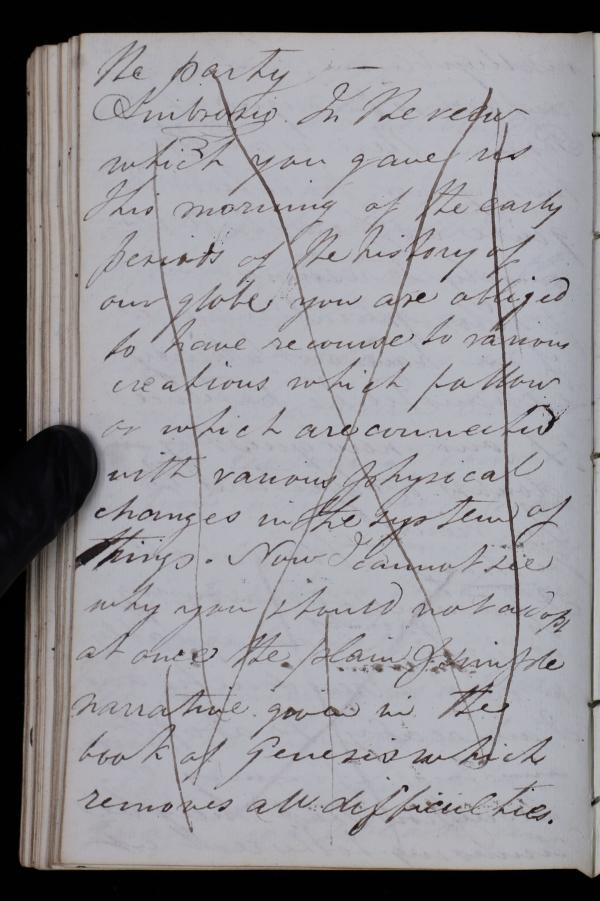 the party —
Ambrosio. In the view
which you gave us
this morning of the early
periods of the history of
our globe you are obliged
to have recourse to various
creations which follow
or which are connected
with various physical
changes in the system of
things. Now I cannot see
why you should not adopt
at once the plain & simple
narrative given in the
book of Genesis which
removes all difficulties.